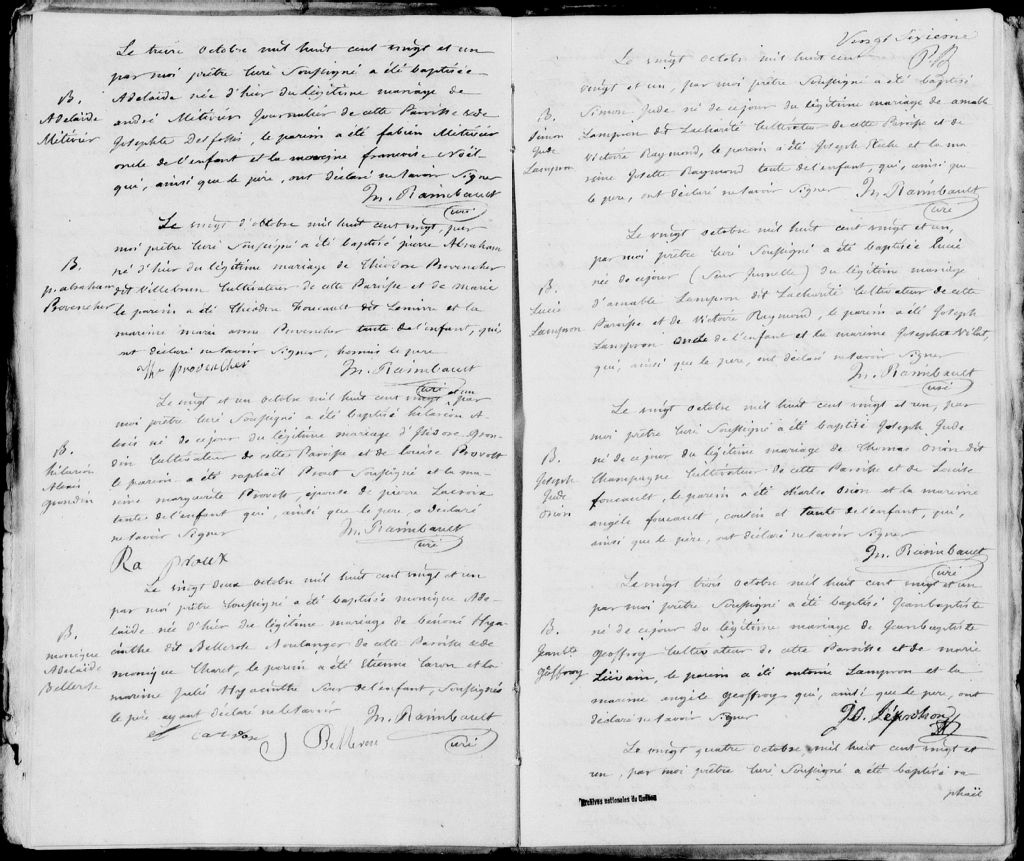 Le treize octobre mil huit cent vingt et un
par moi prêtre Curé Soussigné a été baptisée
B.
Adelaïde
Métivier
Adelaïde née d'hier du légitime mariage de
andré Métivier Journalier de cette Paroisse & de
Josephte Desfossés, le parein a été fabien Metivier
oncle de l'enfant et la mareine francoise Noël
qui, ainsi que le pere, ont déclaré ne savoir Signer
Jn. Raimbault
curé
Le vingt d'octobre mil huit cent vingt, par
moi prêtre Curé Soussigné a été baptisé pierre Abraham
B.
p. abraham
Provencher
né d'hier du légitime mariage de Théodore Provencher
dit Villebrun Cultivateur de cette Paroisse et de marie
le parein a été Théodore foucault dit Lemire et la
mareine marie anne Provencher tante de l'enfant, qui
ont déclaré ne savoir Signer, hormis le pere
The provencher
Jn. Raimbault
curé
et un
Le vingt et un octobre mil huit cent vingt, par
moi prêtre Curé Soussigné a été baptisé hilarion A-
B.
hilarion
Alexis
grondin
lexis né de ce jour du légitime mariage d'Isidore Gron-
din Cultivateur de cette Paroisse et de Louise Provost
le parein a été raphaël Prout Soussigné et la ma-
reine marguerite Provost, épouse de pierre Lacroix
tante de l'enfant qui, ainsi que le pere, a déclaré
ne savoir Signer
Jn. Raimbault
curé
Ra proux
Le vingt deux octobre mil huit cent vingt et un
par moi prêtre Soussigné a été baptisée monique Ade-
B.
monique
Adelaïde
Bellerose
laïde née d'hier du légitime mariage de benoni Hya-
cinthe dit Bellerose Boulanger de cette Paroisse & de
monique Charet, le parein a été Etienne Caron et la
mareine Julie Hyacinthe Sœur de l'enfant, Soussignés
le père ayant déclaré ne le savoir
Jn. Raimbault
curé
et caron
J Bellerose
Vingt Sixieme
Le vingt octobre mil huit cent
vingt et un, par moi prêtre Soussigné a été baptisé
B.
Simon
Jude
Lampron
Simon Jude né de ce jour du légitime mariage de amable
Lampron dit Lacharité Cultivateur de cette Paroisse et de
Victoire Raymond, le parein a été Joseph Riche et la ma-
reine Josette Raymond tante de l'enfant, qui, ainsi que
le pere, ont déclaré ne savoir Signer
Jn. Raimbault
curé
Le vingt octobre mil huit cent vingt et un,
par moi prêtre Curé Soussigné a été baptisée Lucie
B.
Lucie
Lampron
née de ce jour (Sœur Jumelle) du légitime mariage
d'amable Lampron dit Lacharité Cultivateur de cette
Paroisse et de Victoire Raymond, le parein a été Joseph
Lampron oncle de l'enfant et la mareine Josephte Vilat,
qui, ainsi que le pere, ont déclaré ne savoir Signer
Jn. Raimbault
curé
Le vingt octobre mil huit cent vingt et un, par
moi prêtre Curé Soussigné a été baptisé Joseph Jude
B.
Joseph
Jude
Orion
né de ce jour du légitime mariage de Thomas Orion dit
Champagne Cultivateur de cette Paroisse et de Louise
foucault, le parein a été charles Orion et la mareine
angèle foucault, cousin et tante de l'enfant, qui,
ainsi que le père, ont déclaré ne savoir Signer
Jn. Raimbault
curé
Le vingt trois octobre mil huit cent vingt et un
par moi prêtre Soussigné a été baptisé Jeanbaptiste
B.
Jeanbte
Geoffroy
né de ce jour du légitime mariage de Jeanbaptiste
Geoffroy Cultivateur de cette Paroisse et de marie
le parein a été antoine Lampron et la
mareine angèle Geoffroy qui, ainsi que le pere, ont
déclaré ne savoir Signer
Le vingt quatre octobre, mil huit cent vingt et
un, par moi prêtre Curé Soussigné a été baptisé ra-
phaël
Archives nationales du Québec